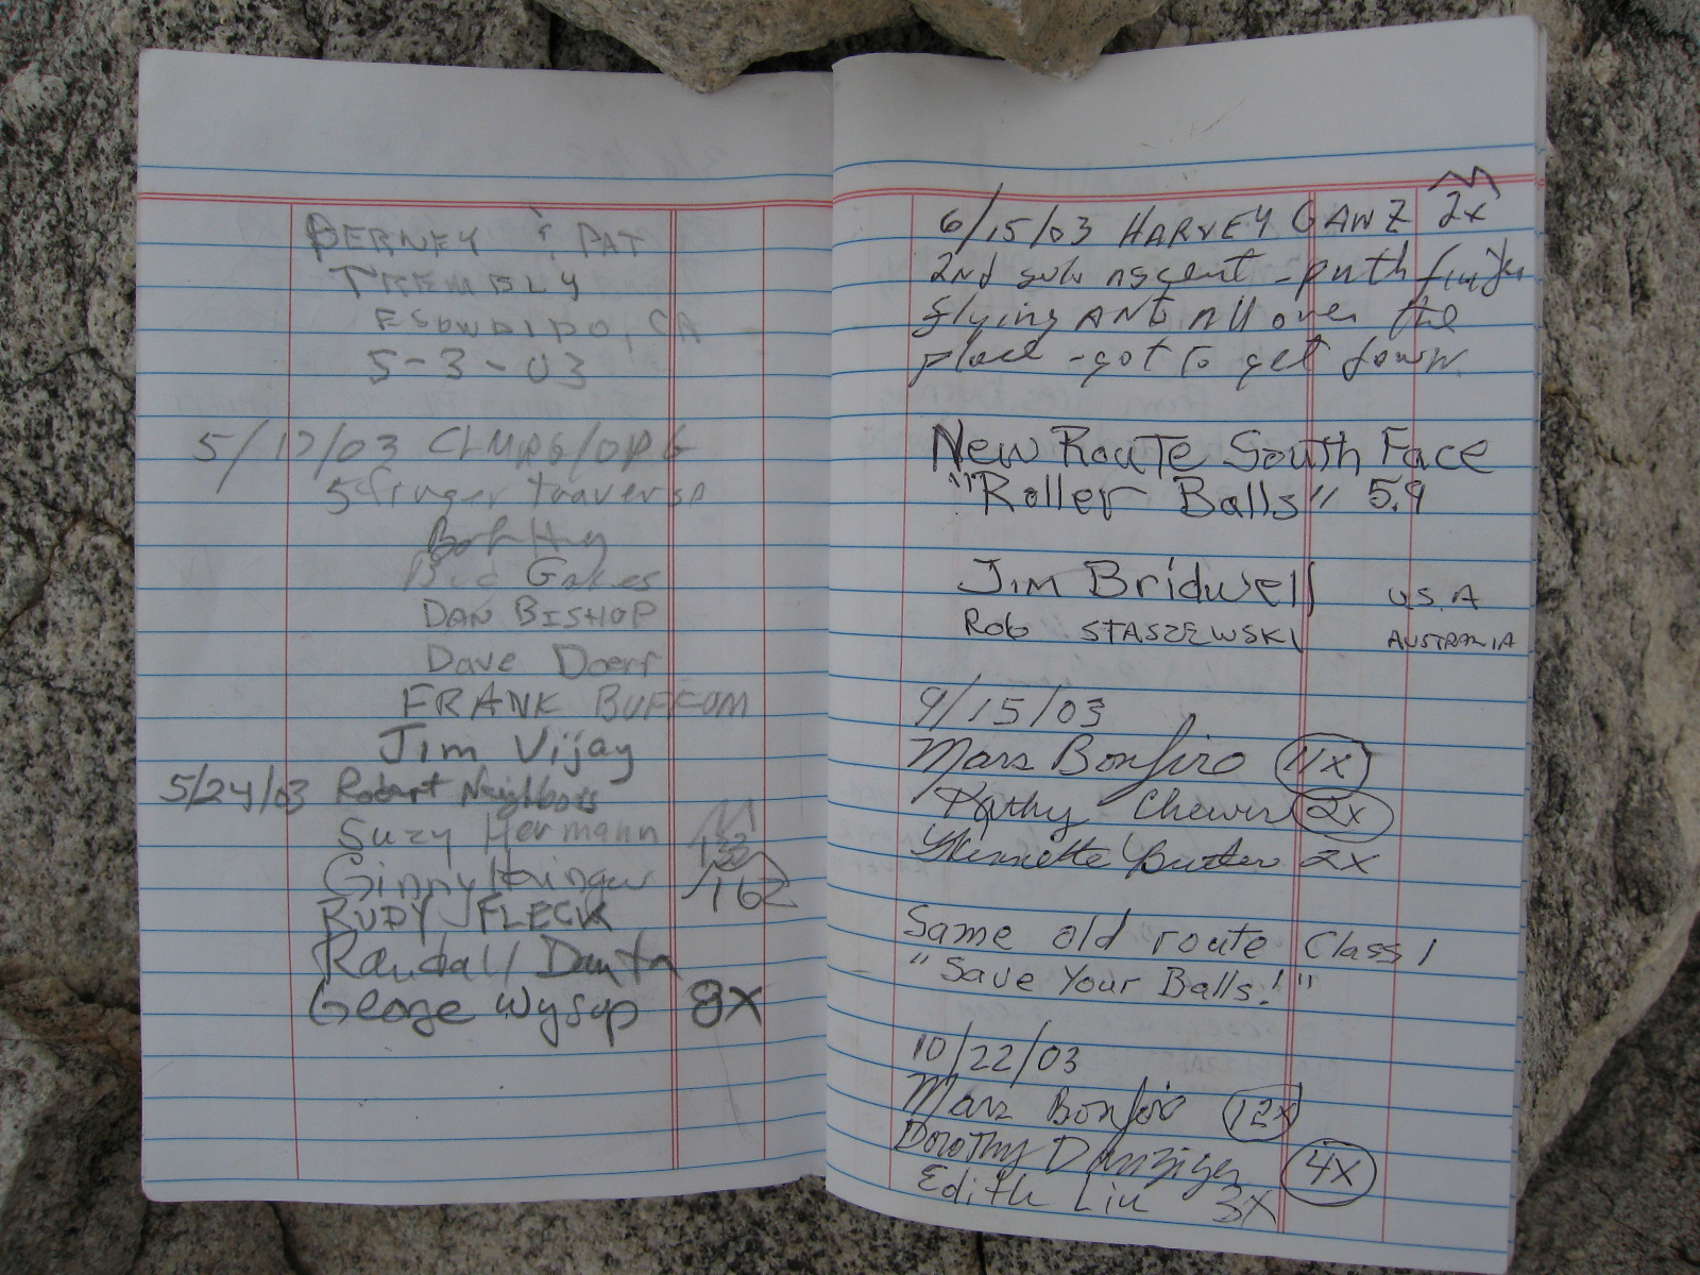 BERNEY & PAT
TREMBLY
ESCONDIDO, CA
5-3-03
5/17/03
5 finger traverse
Bob
Gates
DAN BISHOP
Dave Doerr
FRANK BUFFUM
Jim Vijay
5/24/03 Robert Neighbors
Suzy Hermann 133
Ginny 162
RUDY FLECK
Randall Danta
George Wysup 8X
6/15/03 HARVEY GANZ 2x
2nd ascent -
flying ANTS All over the
place - got to get down
New Route South Face
"Roller Balls" 5.9
Jim Bridwell U.S.A
Rob STASZEWSKI AUSTRALIA
9/15/03
Mars Bonfire 11x
Kathy Cheever 2x
2x
Same old route Class 1
"Save Your Balls!"
10/22/03
Mars Bonfire 12x
Dorothy Danziger 4x
Edith Liu 3X